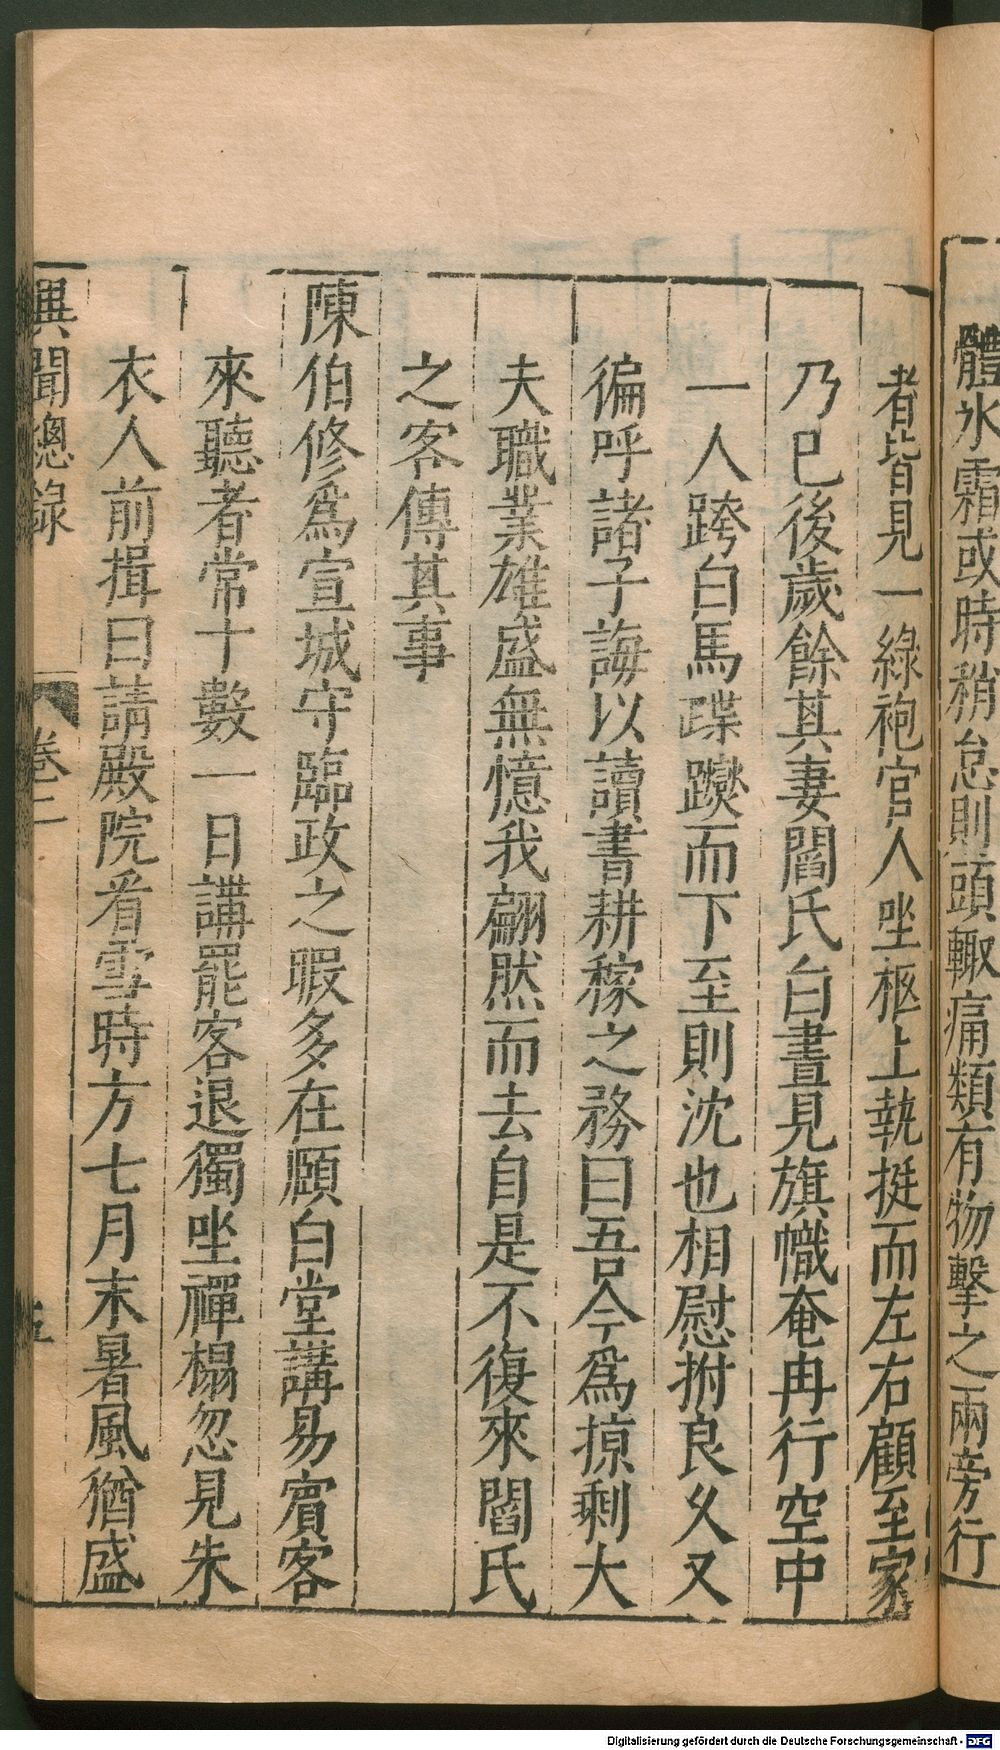 體氷霜或時稍怠則頭輙痛類有物擊之兩旁行
者皆見一綠袍官人坐柩上執挺而左右顧至家
乃巳後歲餘其妻閻氏白晝見旗幟奄冉行空中
一人跨白馬蹀躞而下至則沈也相慰拊良乆又
徧呼諸子誨以讀書耕稼之務曰吾今爲掠剩大
夫職業雄盛無憶我翩然而去自是不復來閻氏
之客傳其事
陳伯修爲宣城守臨政之暇多在願白堂講易賓客
來聽者常十數一日講罷客退獨坐禪榻忽見朱
衣人前揖曰請殿院看雪時方七月末暑風猶盛
異聞總錄 卷二 五
Digitalisierung gefördert durch die Deutsche Forschungsgemeinschaft - DFG